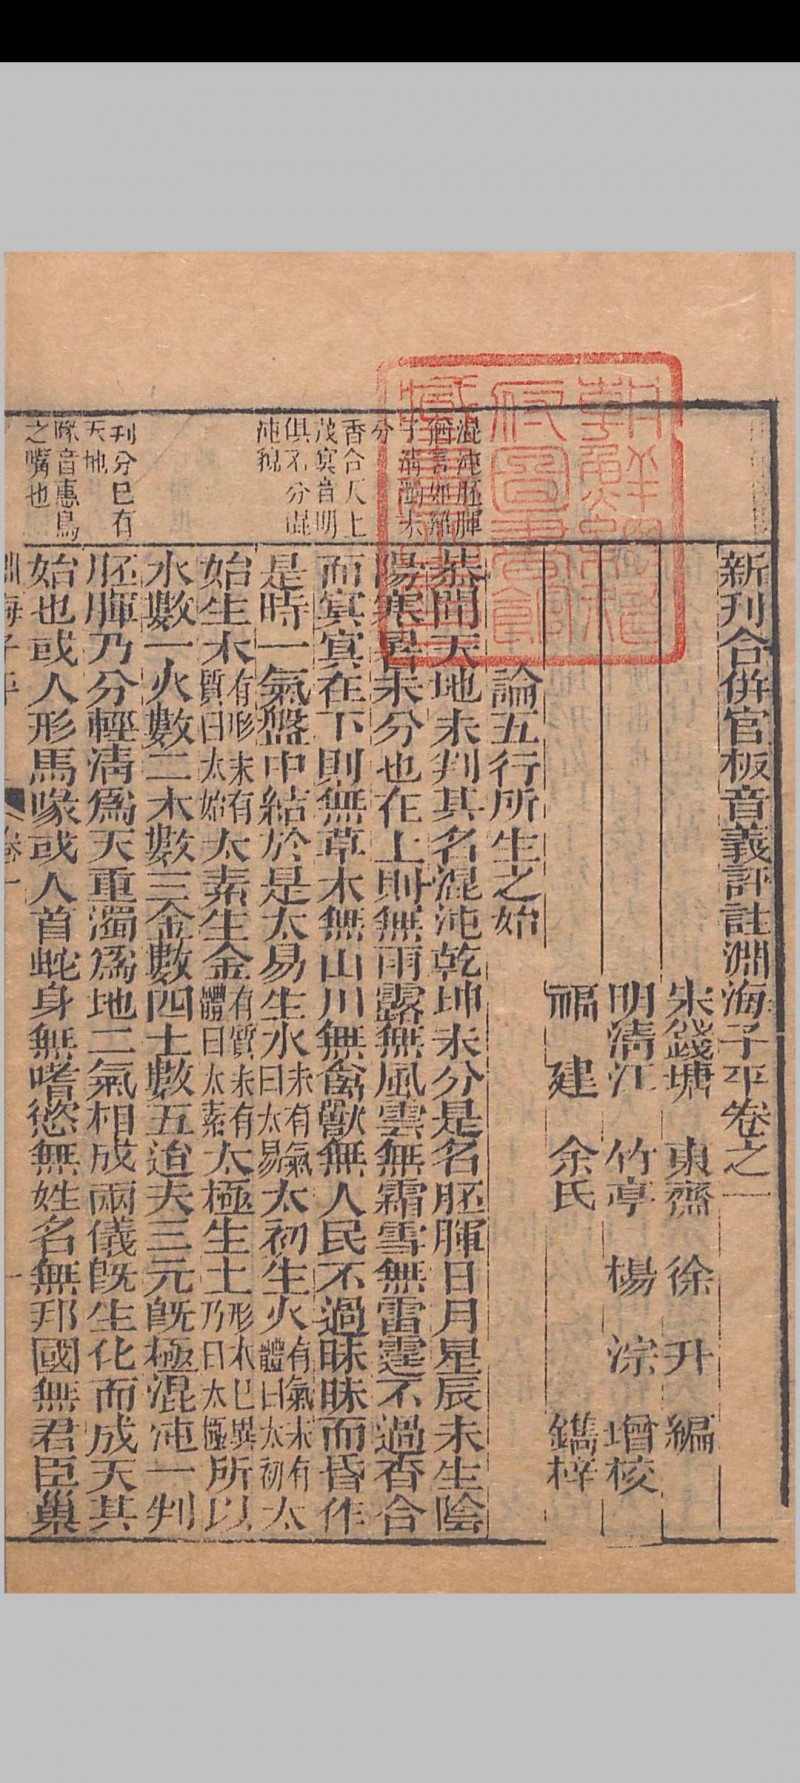 新刊合併官板音義評註淵海子平卷之一
宋錢塘 東齋 徐 升 編
明清江 竹亭 楊 淙 增校
福 建 余氏 鐫梓
論五行所生之始
混沌胚腪
分
恭聞天地未判其名混沌乾坤未分是名胚腪日月星辰未生陰
陽寒暑未分也在上則無雨露無風雲無霜雪無雷霆不過杳合
香合上
茂冥皆明
俱不分混
沌貌
而冥冥在下則無草木無山川無禽獸無人民不過昧昧而昏作
是時一氣盤中結於是太易生水未有氣曰太易太初生火有氣未有體曰太初太
始生木有形未有質曰太始太素生金有質未有體曰太素太極生土形体已異乃曰太極所以
水數一火數二木數三金數四土數五迨夫三元既極混沌一判
判分已有
天地
胚腪乃分輕清爲天重濁爲地二氣相成兩儀既生化而成天其
喙音惠鳥
之嘴也
始也或人形馬喙或人首蛇身無嗜慾無姓名無邦國無君臣巢
淵海子平
卷一
一
朝鮮總督府圖書館藏書之印